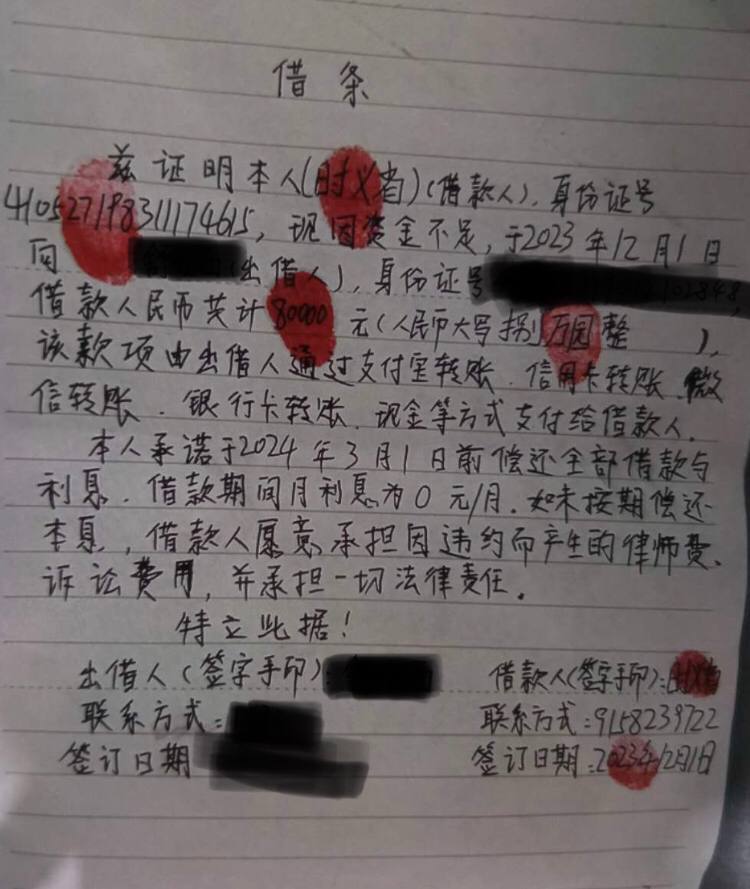 借条
兹证明本人(时义省)(借款人),身份证号
410527198311174615,现因资金不足,于2023年12月1日
向(出借人),身份证号
借款人民币共计80000元(人民币大写捌万圆整),
该款项由出借人通过支付宝转账.信用卡转账.微
信转账.银行卡转账.现金等方式支付给借款人.
本人承诺于2024年3月1日前偿还全部借款与
利息.借款期间月利息为0元/月.如未按期偿还
本息,借款人愿意承担因违约而产生的律师费、
诉讼费用,并承担一切法律责任.
特立此据!
出借人(签字手印): 借款人(签字手印):时义省
联系方式: 联系方式:9158239722
签订日期 签订日期:2023年12月1日